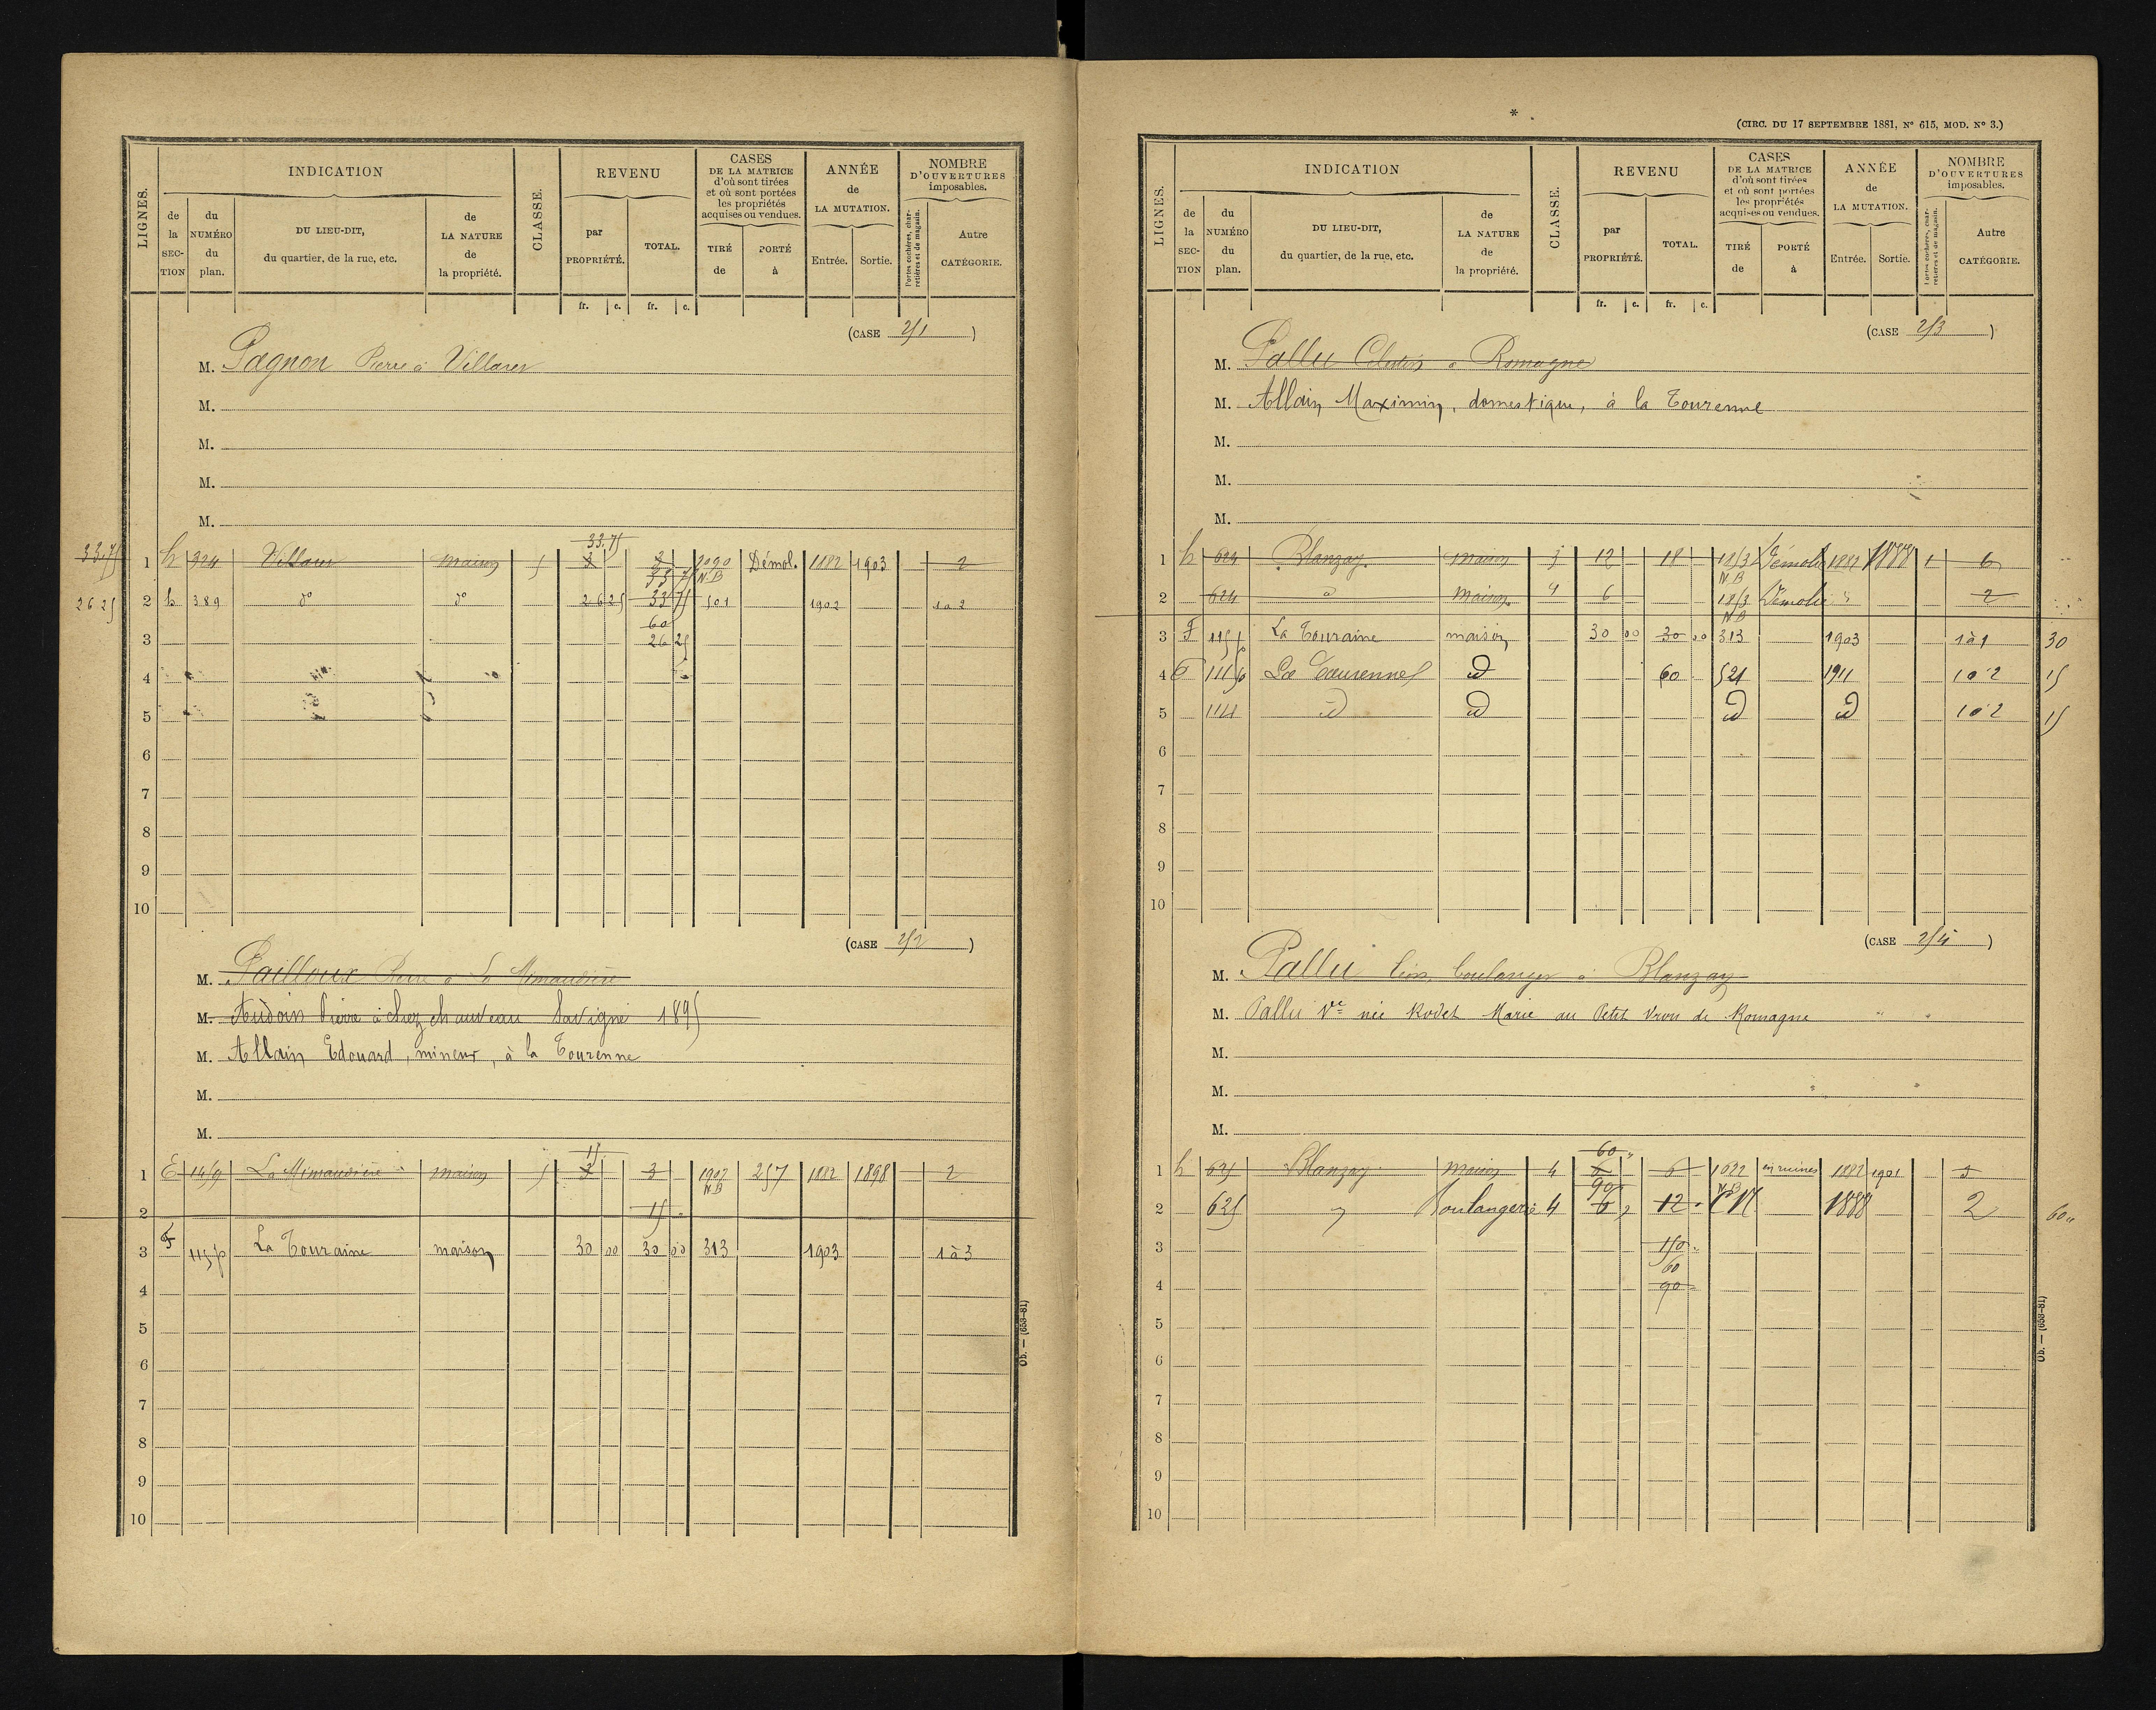 LIGNES.
INDICATION
de la SECTION
du NUMÉRO du plan.
DU LIEU-DIT, du quartier, de la rue, etc.
de LA NATURE de la propriété.
CLASSE.
REVENU
par PROPRIÉTÉ.
TOTAL.
fr. c. fr. c.
CASES DE LA MATRICE d'où sont tirées et où sont portées les propriétés acquises ou vendues.
TIRÉ de
PORTÉ à
ANNÉE de LA MUTATION.
Entrée. Sortie.
NOMBRE D'OUVERTURES imposables.
Portes cochères, charretières et de magasin.
Autre CATÉGORIE.
(CASE 251)
M. Pagnon Pierre à Villaret
M.
M.
M.
M.
33.75
33.75 1 h 324 Villaret maison 5 3 3 2090 Démol. 1882 1903 2
33 75 N.B
26 25 2 h 389 do do 26 25 33 75 501 1902 1 à 2
60
3 26 25
4
5
6
7
8
9
10
(CASE 252)
M. Pailloux Pierre à La Mimaudière
M. Audoin Pierre à chez chauveau Savigné 1895
M. Allain Edouard, mineur, à la Tourenne
M.
M.
15
1 E 1459 La Mimaudière maison 5 3 3 1907 257 1882 1898 2
N.B
2 15
3 F 115 p La Touraine maison 30 00 30 00 313 1903 1 à 3
4
5
6
7
8
9
10
Ob. — (653-81)
*
(CIRC. DU 17 SEPTEMBRE 1881, N° 615, MOD. N° 3.)
LIGNES.
INDICATION
de la SECTION
du NUMÉRO du plan.
DU LIEU-DIT, du quartier, de la rue, etc.
de LA NATURE de la propriété.
CLASSE.
REVENU
par PROPRIÉTÉ.
TOTAL.
fr. c. fr. c.
CASES DE LA MATRICE d'où sont tirées et où sont portées les propriétés acquises ou vendues.
TIRÉ de
PORTÉ à
ANNÉE de LA MUTATION.
Entrée. Sortie.
NOMBRE D'OUVERTURES imposables.
Portes cochères, charretières et de magasin.
Autre CATÉGORIE.
(CASE 253)
M. Pallu Célestin à Romagne
M. Allain Maximin, domestique, à la Tourenne
M.
M.
M.
1 h 624 Blanzay maison 3 12 18 1853 Démolie 1882 1888 1 6
N.B
2 624 d maison 4 6 1853 Démolie 2
N.B
3 F 115 p La Touraine maison 30 00 30 00 313 1903 1 à 1 30
4 La Tourenne id 60 521 1911 1 à 2 15
5 id id id id 1 à 2 15
6
7
8
9
10
(CASE 254)
M. Pallu Léon, boulanger à Blanzay
M. Pallu Ve née Rodet Marie au Petit Vrou de Romagne
M.
M.
M.
60 "
1 h 625 Blanzay maison 4 6 6 1622 en ruines 1882 1901 5
90 N.B
2 625 " Boulangerie 4 6 12 1888 2 60 "
3 150
60
4 90
5
6
7
8
9
10
Ob. — (653-81)